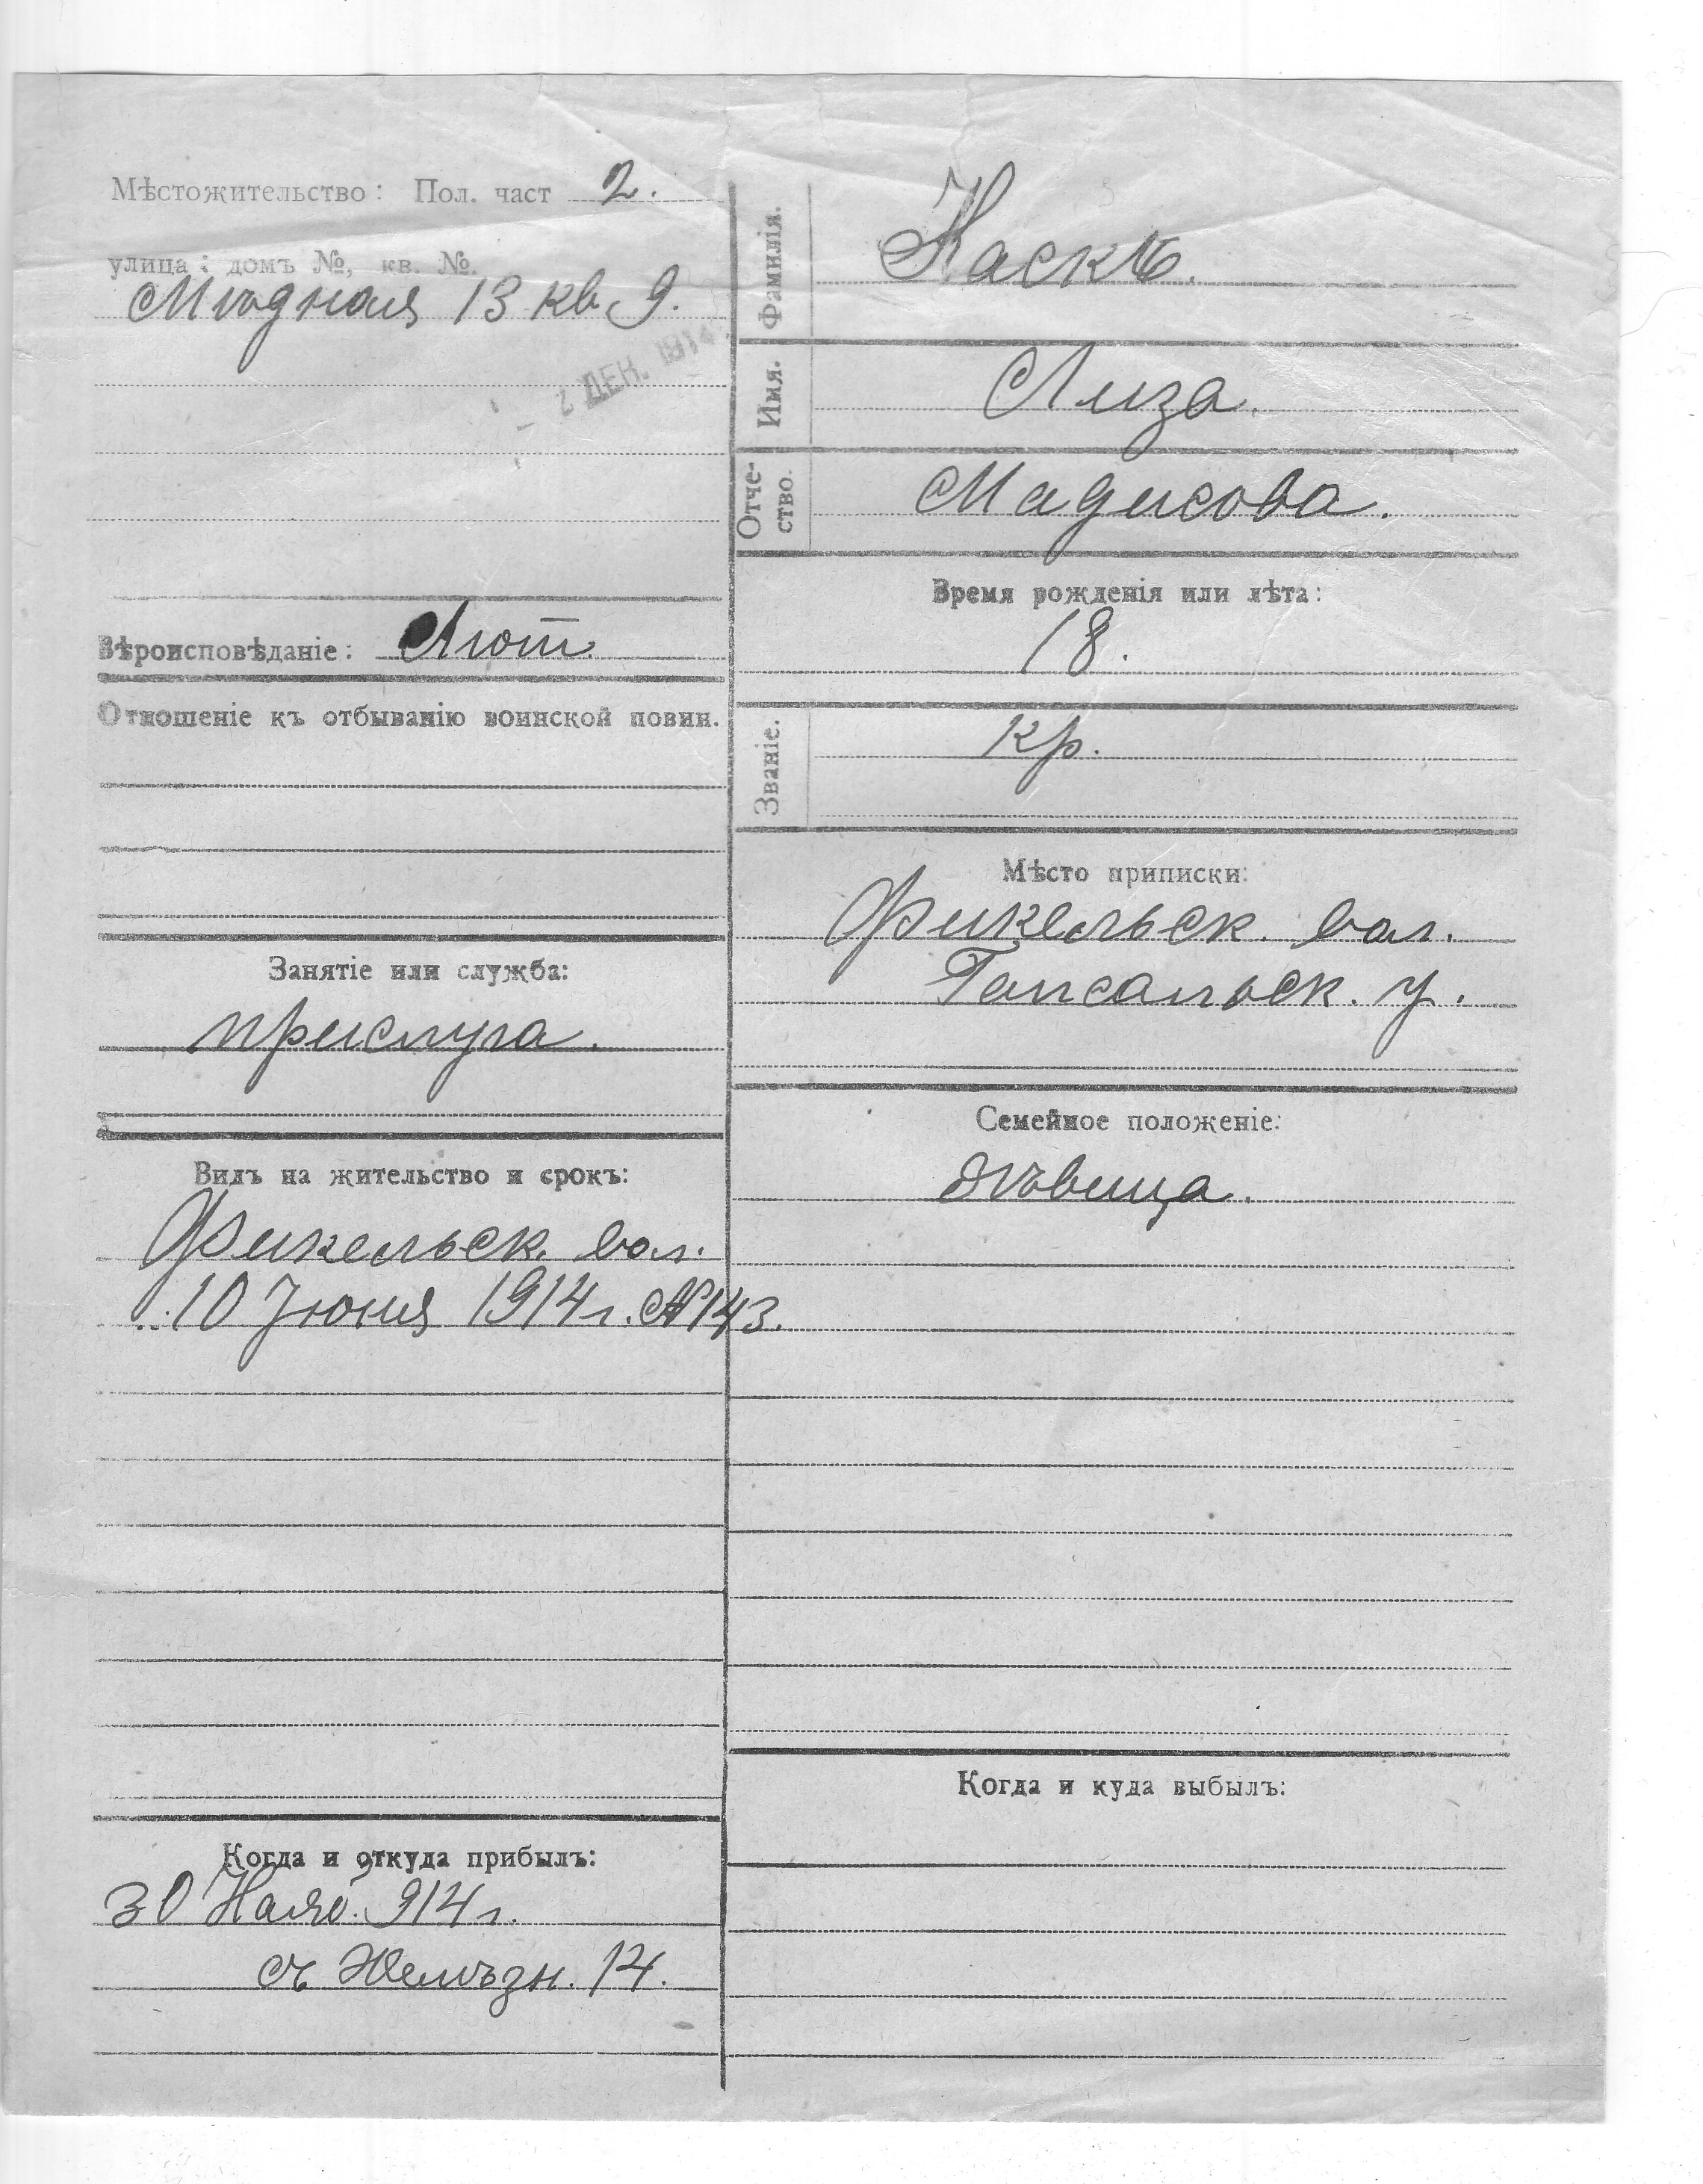 Мѣстожительство: Пол. част 2.
улица: домъ №, кв. №.
Мѣдная 13 кв 9.
2 ДЕК. 1914
Вѣроисповѣданіе: Лют.
Отношеніе къ отбыванію воинской повин.
Занятіе или служба:
прислуга.
Видъ на жительство и срокъ:
Фикельск. вол.
10 Іюня 1914 г. № 143.
Когда и откуда прибылъ:
30 Нояб. 914 г.
съ Желѣзн. 14.
Фамилія. Каскъ.
Имя. Лиза.
Отче-
ство. Мадисова.
Время рожденія или лѣта:
18.
Званіе. кр.
Мѣсто приписки:
Фикельск. вол.
Гапсальск. у.
Семейное положеніе:
дѣвица.
Когда и куда выбылъ: